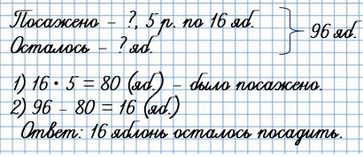 Посажено – ?, 5 р. по 16 яб.
Осталось – ? яб.
96 яб.
1) 16 · 5 = 80 (яб.) – было посажено.
2) 96 – 80 = 16 (яб.)
Ответ: 16 яблонь осталось посадить.